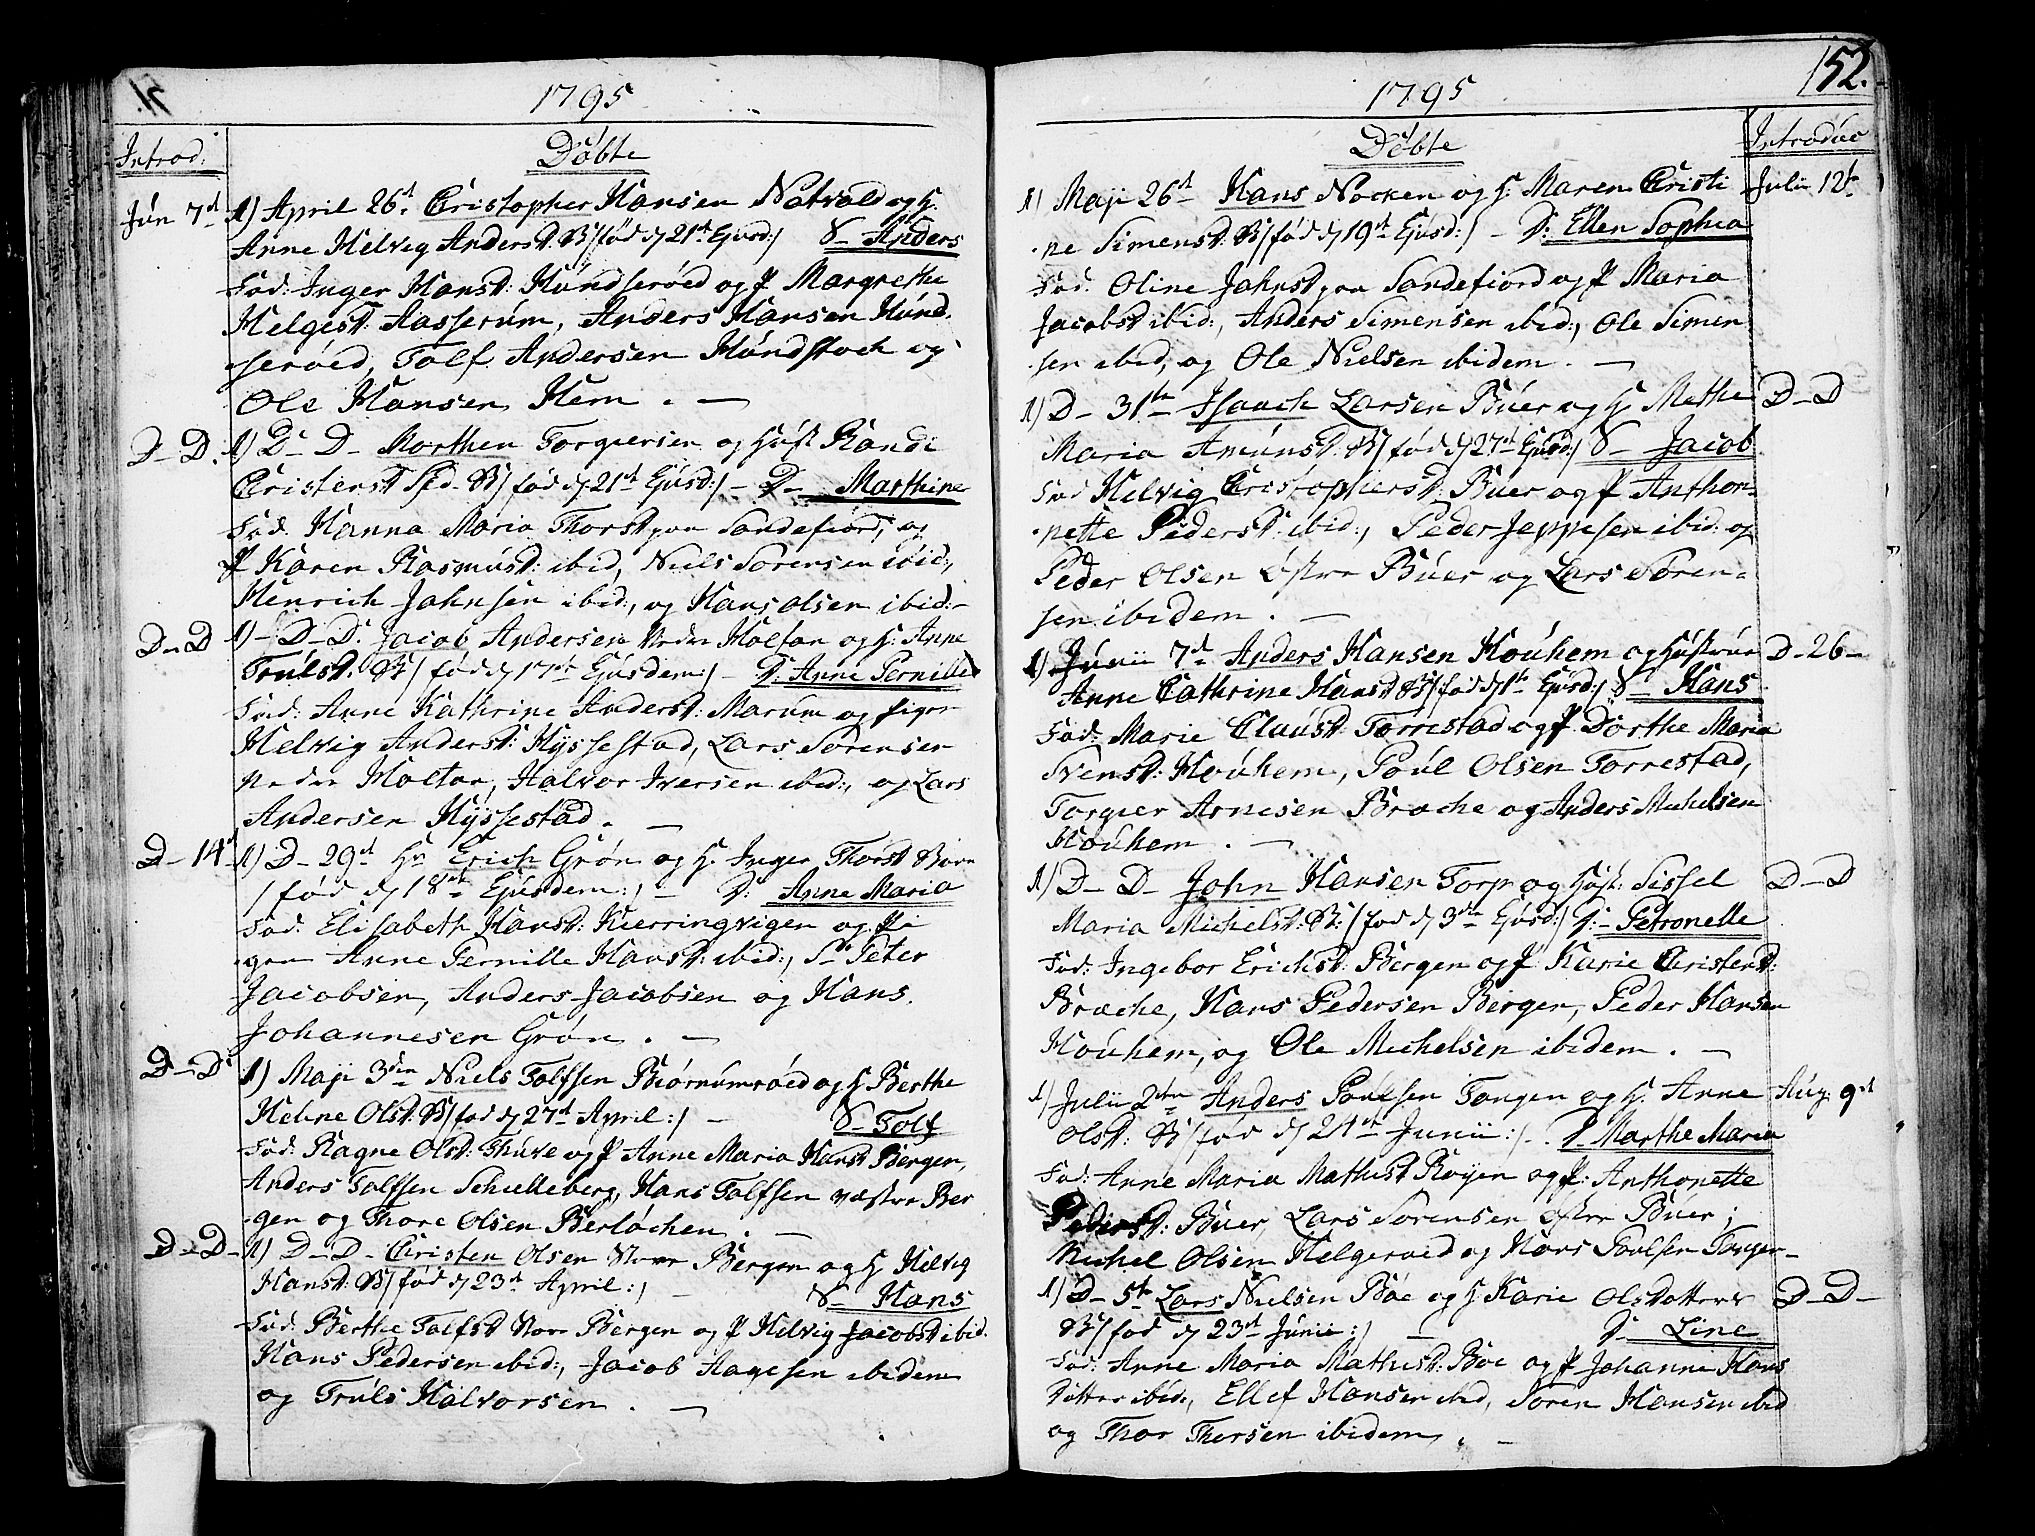 51.
1795
Introd:
Döbte
Jun 7d
1) April 26d Christopher Hansen Natvald og H.
Anne Helvig Andersd: B/ fød d 21d Ejusd:/ S– Anders
Fad: Inger Hansd: Hundserøed og P Margrethe
Helgesd: Aasserum, Anders Hansen Hund-
serøed, Tolf Andersen Hundstock og
Ole Hansen Hem. –
D–D.
1) D– D– Morthen Torgiersen og Hust Randi
Christensd B/ fød d 21d Ejusd:/ – D– Marthine
Fad. Hanna Maria Thorsd paa Sandefiord, og
P Karen Rasmusd: ibid, Niels Sørensen ibid:,
Henrich Jahnsen ibid:, og Hans Olsen ibid:–
D–D
1) –D–D. Jacob Andersen Nedre Holtan og H: Anne
Trulsd. B/ fød d 17de Ejusdem:/ – D. Anne Pernille
Fad: Anne Kathrine Andersd: Marum og Piger
Helvig Andersd: Hyssestad, Lars Sørensen
Nedre Holtan, Halvor Iversen ibid:, og Lars
Andersen Hyssestad. –
D– 14d
1) D– 29d Hr Erich Grøn og H. Inger Thorsd Barn
/ fød d 18de Ejusdem:/ – D: Anne Maria
Fad: Elisabeth Hansd: Kierringvigen og Pi
gen Anne Pernille Hansd: ibid:, Sr Peter
Jacobsen, Anders Jacobsen og Hans
Johannesen Grøn. –
D–D
1) Maji 3die Niels Tolfsen Biørnumrøed og H Berthe
Helene Olsd: B/ fød d 27d April:/ – S– Tolf
Fad: Ragne Olsd: Thuve og P Anne Maria Hansd Bergen,
Anders Tolfsen Schielleberg, Hans Tolfsen vestre Ber
gen og Thore Olsen Berløchen. –
D–D–
1) D–D– Christen Olsen Store Bergan og H Helvig
Hansd: B/ fød d 23d April:/ – S– Hans
Fad. Berthe Tolfsd Store Bergen og P Helvig Jacobsd ibid.
Hans Pedersen ibid:, Jacob Aagesen ibidem
og Truls Halvorsen. –
52.
1795
Döbte
Introduc
Julii 12te
1) Maji 26d Hans Nocken og H: Maren Christi
ne Simensd: B/ fød d 19d Ejusd:/ – D: Ellen Sophia
Fad. Oline Jahnsd paa Sandefiord og P Maria
Jacobsd ibid:, Anders Simensen ibid:, Ole Simen
sen ibid, og Ole Nielsen ibidem. –
D–D
1) D– 31te Isaach Larsen Buer og H Methe
Maria Amunsd: B/ fød d 27d Ejusd:/ S– Jacob
Fad Helvig Christophersd: Buer og P Anthon-
nette Pedersd: ibid:, Peder Jeppesen ibid: og
Peder Olsen Østre Buer og Lars Søren-
sen ibidem. –
D–26–
1) Junii 7d Anders Hansen Houhem og Hustrue
Anne Cathrine Hansd B/ fød d 1te Ejusd:/ S– Hans
Fad: Marie Clausd: Torrestad og P Dorthe Maria
Svensd: Houhem, Poul Olsen Torrestad,
Torgier Arnesen Broche og Anders Michelsen
Houhem. –
D–D
1) D– D– John Hansen Torp og Hust: Sissel
Maria Michelsd: B: / fød d 3die Ejusd:/ D– Petronelle
Fad: Ingebor Erichsd: Bergen og P Karie Christensd:
Broche, Hans Pedersen Bergen, Peder Hansen
Houhem, og Ole Michelsen ibidem. –
Aug: 9d
1) Julii 2den Anders Poulsen Tangen og H. Anne
Olsd: B/ fød d 24de Junii:/ – D Marthe Maria
Fad: Anne Maria Mathisd Røyen og P: Anthonette
Pedersd: Buer, Lars Sørensen Østre Buer,
Michel Olsen Helgerøed og Hans Poulsen Tangen–
D–D–
1) D– 5te Lars Nielsen Bøe og H Karie Olsdatters
B/ fød d 23d Junii:/ – D– Line
Fad: Anne Maria Mathisd: Bøe og P Johanne Hans
Datter ibid:, Ellef Hansen ibid, Søren Hansen ibid
og Thor Thorsen ibidem. –